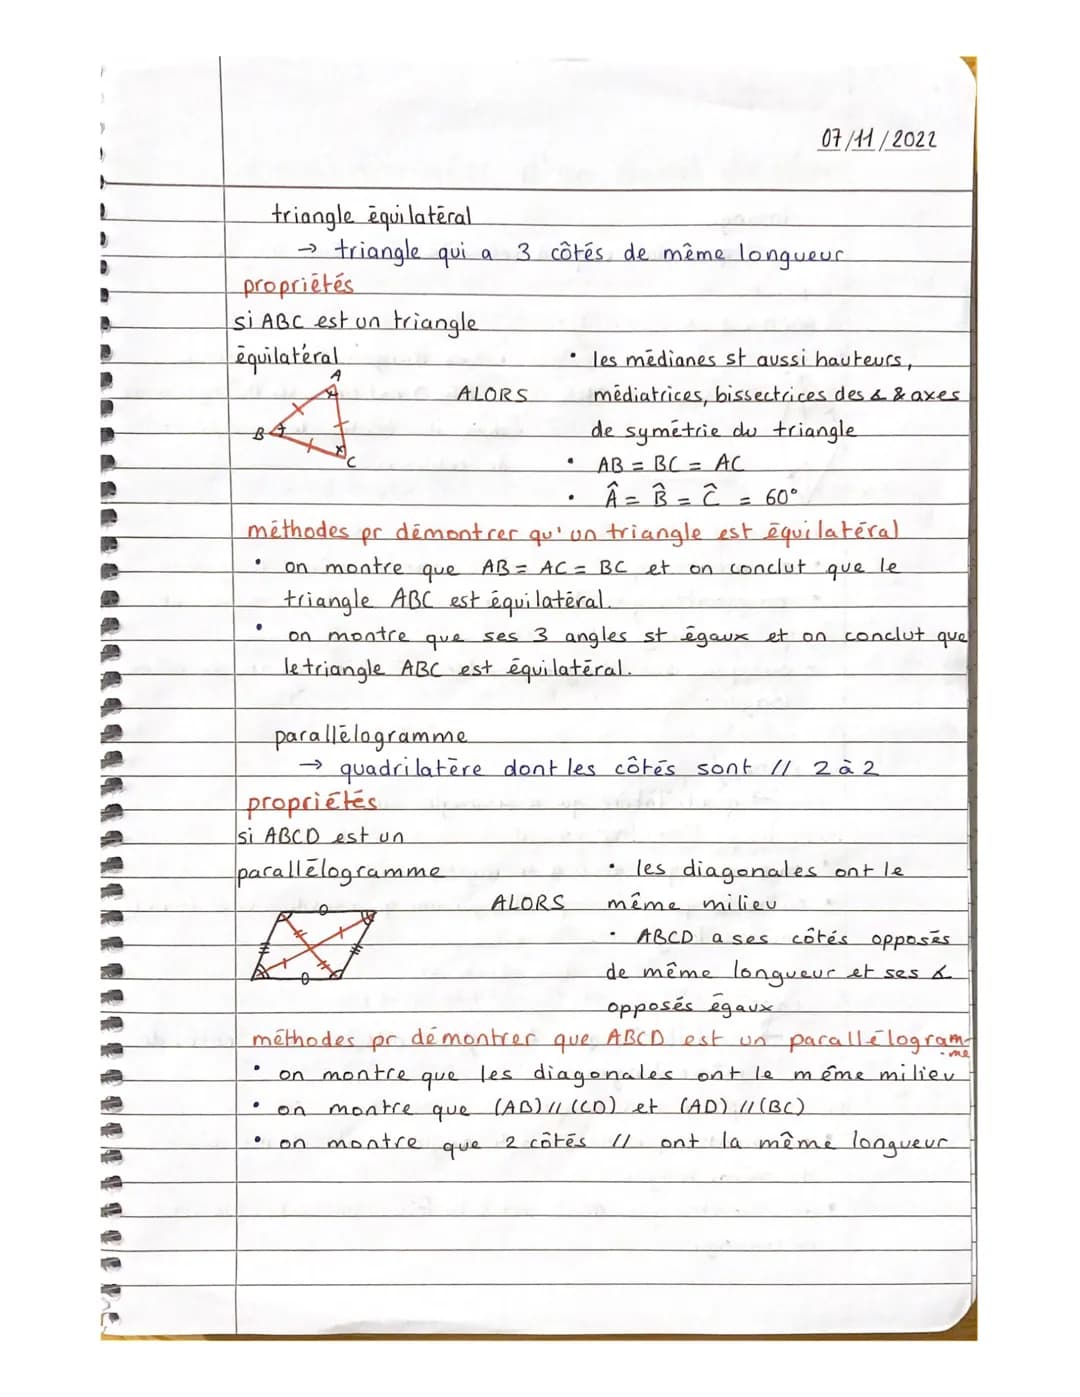 07/11/2022
triangle équilatéral
→ triangle qui a 3 côtés de même longueur
propriétés
si ABC est un triangle
équilatéral
• les médianes st aussi hauteurs,
A
ALORS
médiatrices, bissectrices des ∡ & axes
B
de symétrie du triangle
C
• AB = BC = AC
• Â = B̂ = Ĉ = 60°
méthodes pr démontrer qu'un triangle est équilatéral
• on montre que AB = AC = BC et on conclut que le
triangle ABC est équilatéral.
• on montre que ses 3 angles st égaux et on conclut que
le triangle ABC est équilatéral.
parallélogramme
→ quadrilatère dont les côtés sont // 2 à 2
propriétés
si ABCD est un
parallélogramme
• les diagonales ont le
ALORS
même milieu
• ABCD a ses côtés opposés
de même longueur et ses ∡
opposés égaux
méthodes pr démontrer que ABCD est un parallélogram-
me
• on montre que les diagonales ont le même milieu
• on montre que (AB) // (CD) et (AD) // (BC)
• on montre que 2 côtés // ont la même longueur